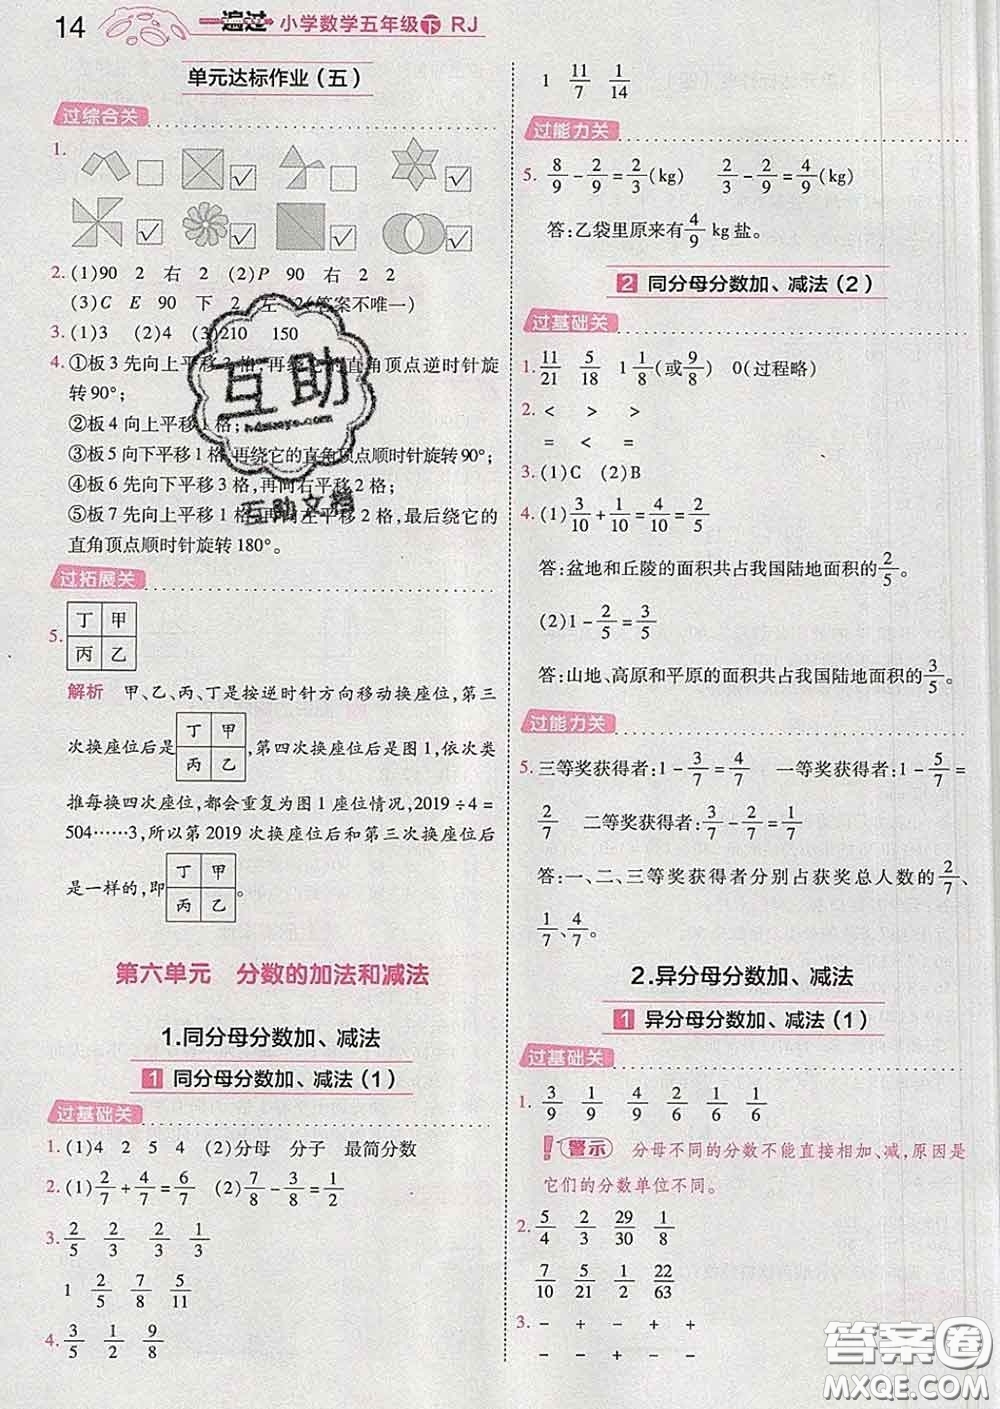 14 一遍过 小学数学五年级 下 RJ
单元达标作业(五)
过综合关
1. □ ☑ □ ☑
☑ ☑ ☑ ☑
2. (1)90 2 右 2 (2)P 90 右 2 2
(3)C E 90 下 2 左 2(答案不唯一)
3. (1)3 (2)4 (3)210 150
4. ①板 3 先向上平移 3 格,再绕它的直角顶点逆时针旋
转 90°;
②板 4 向上平移 1 格;
③板 5 向下平移 1 格,再绕它的直角顶点顺时针旋转 90°;
④板 6 先向下平移 3 格,再向右平移 2 格;
⑤板 7 先向上平移 1 格,再向左平移 2 格,最后绕它的
直角顶点顺时针旋转 180°。
过拓展关
5. 丁 甲
丙 乙
解析 甲、乙、丙、丁是按逆时针方向移动换座位,第三
次换座位后是 丁 甲 丙 乙 ,第四次换座位后是图 1,依次类
推每换四次座位,都会重复为图 1 座位情况,2019÷4=
504……3,所以第 2019 次换座位后和第三次换座位后
是一样的,即 丁 甲 丙 乙 。
第六单元 分数的加法和减法
1.同分母分数加、减法
1 同分母分数加、减法(1)
过基础关
1. (1)4 2 5 4 (2)分母 分子 最简分数
2. (1)2/7+4/7=6/7 (2)7/8-3/8=1/2
3. 2/5 2/3 2/3 1/3
1 2/5 7/8 5/11
4. 3/5 1/2 9/8
1 11/7 1/14
过能力关
5. 8/9-2/9=2/3(kg) 2/3-2/9=4/9(kg)
答:乙袋里原来有 4/9 kg 盐。
2 同分母分数加、减法(2)
过基础关
1. 11/21 5/18 1 1/8(或9/8) 0(过程略)
2. < > >
= < =
3. (1)C (2)B
4. (1)3/10+1/10=4/10=2/5
答:盆地和丘陵的面积共占我国陆地面积的2/5。
(2)1-2/5=3/5
答:山地、高原和平原的面积共占我国陆地面积的3/5。
过能力关
5. 三等奖获得者:1-3/7=4/7 一等奖获得者:1-5/7=
2/7 二等奖获得者:3/7-2/7=1/7
答:一、二、三等奖获得者分别占获奖总人数的2/7、
1/7、4/7。
2.异分母分数加、减法
1 异分母分数加、减法(1)
过基础关
1. 3/9 1/9 4/9 2/6 1/6 1/6
警示 分母不同的分数不能直接相加、减,原因是
它们的分数单位不同。
2. 5/4 2/3 29/30 1/8
7/10 5/21 1/2 22/63
3. - + - + +
- - - - +
互助
hdzuoye.com
互助文档
答案圈
MXQE.COM